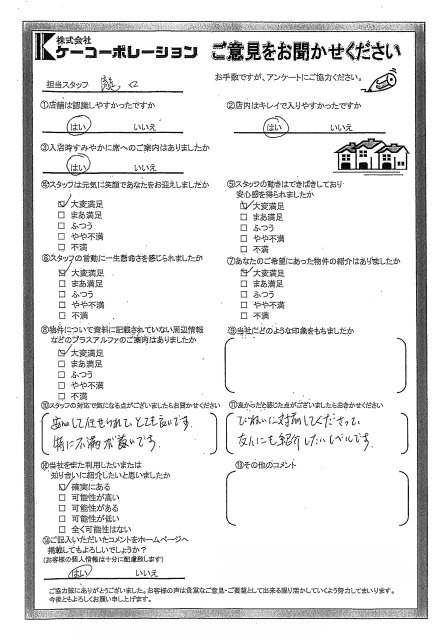 株式会社
ケーコーポレーション
ご意見をお聞かせください
お手数ですが、アンケートにご協力ください。
担当スタッフ
①店舗は認識しやすかったですか
はい いいえ
②店内はキレイで入りやすかったですか
はい いいえ
③入店時すみやかに席へのご案内はありましたか
はい いいえ
④スタッフは元気に笑顔であなたをお迎えしましたか
☑ 大変満足
□ まあ満足
□ ふつう
□ やや不満
□ 不満
⑤スタッフの動きはてきぱきしており
安心感を得られましたか
☑ 大変満足
□ まあ満足
□ ふつう
□ やや不満
□ 不満
⑥スタッフの言動に一生懸命さを感じられましたか
☑ 大変満足
□ まあ満足
□ ふつう
□ やや不満
□ 不満
⑦あなたのご希望にあった物件の紹介はありましたか
☑ 大変満足
□ まあ満足
□ ふつう
□ やや不満
□ 不満
⑧物件について資料に記載されていない周辺情報
などのプラスアルファのご案内はありましたか
☑ 大変満足
□ まあ満足
□ ふつう
□ やや不満
□ 不満
⑨当社にどのような印象をもちましたか
⑩スタッフの対応で気になる点がございましたらお聞かせください
安心して任せられて、とても良いです。
特に不満が無いです。
⑪良かったと感じた点がございましたらお聞かせください
ていねいに対応してくださって、
友人にも紹介したいレベルです。
⑫当社をまた利用したいまたは
知り合いに紹介したいと思いましたか
☑ 確実にある
□ 可能性が高い
□ 可能性がある
□ 可能性が低い
□ 全く可能性はない
⑬その他のコメント
⑭ご記入いただいたコメントをホームページへ
掲載してもよろしいでしょうか？
(お客様の個人情報は十分に配慮致します)
はい いいえ
ご協力誠にありがとうございました。お客様の声は貴重なご意見・ご要望として出来る限り活かしていくよう努力してまいります。
今後ともよろしくお願い申し上げます。